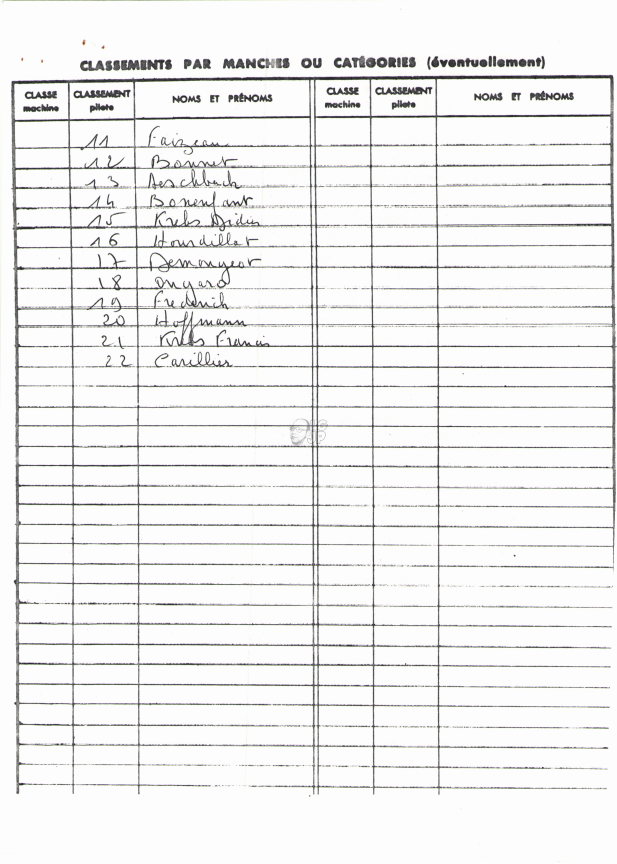 CLASSEMENTS PAR MANCHES OU CATÉGORIES (éventuellement)
CLASSE machine CLASSEMENT pilote NOMS ET PRÉNOMS CLASSE machine CLASSEMENT pilote NOMS ET PRÉNOMS
11 Faizeau
12 Bonnet
13 Aeschbach
14 Bonenfant
15 Krebs Didier
16 Hourdillat
17 Demongeot
18 Ongaro
19 Frederich
20 Hoffmann
21 Krebs Francis
22 Carillier